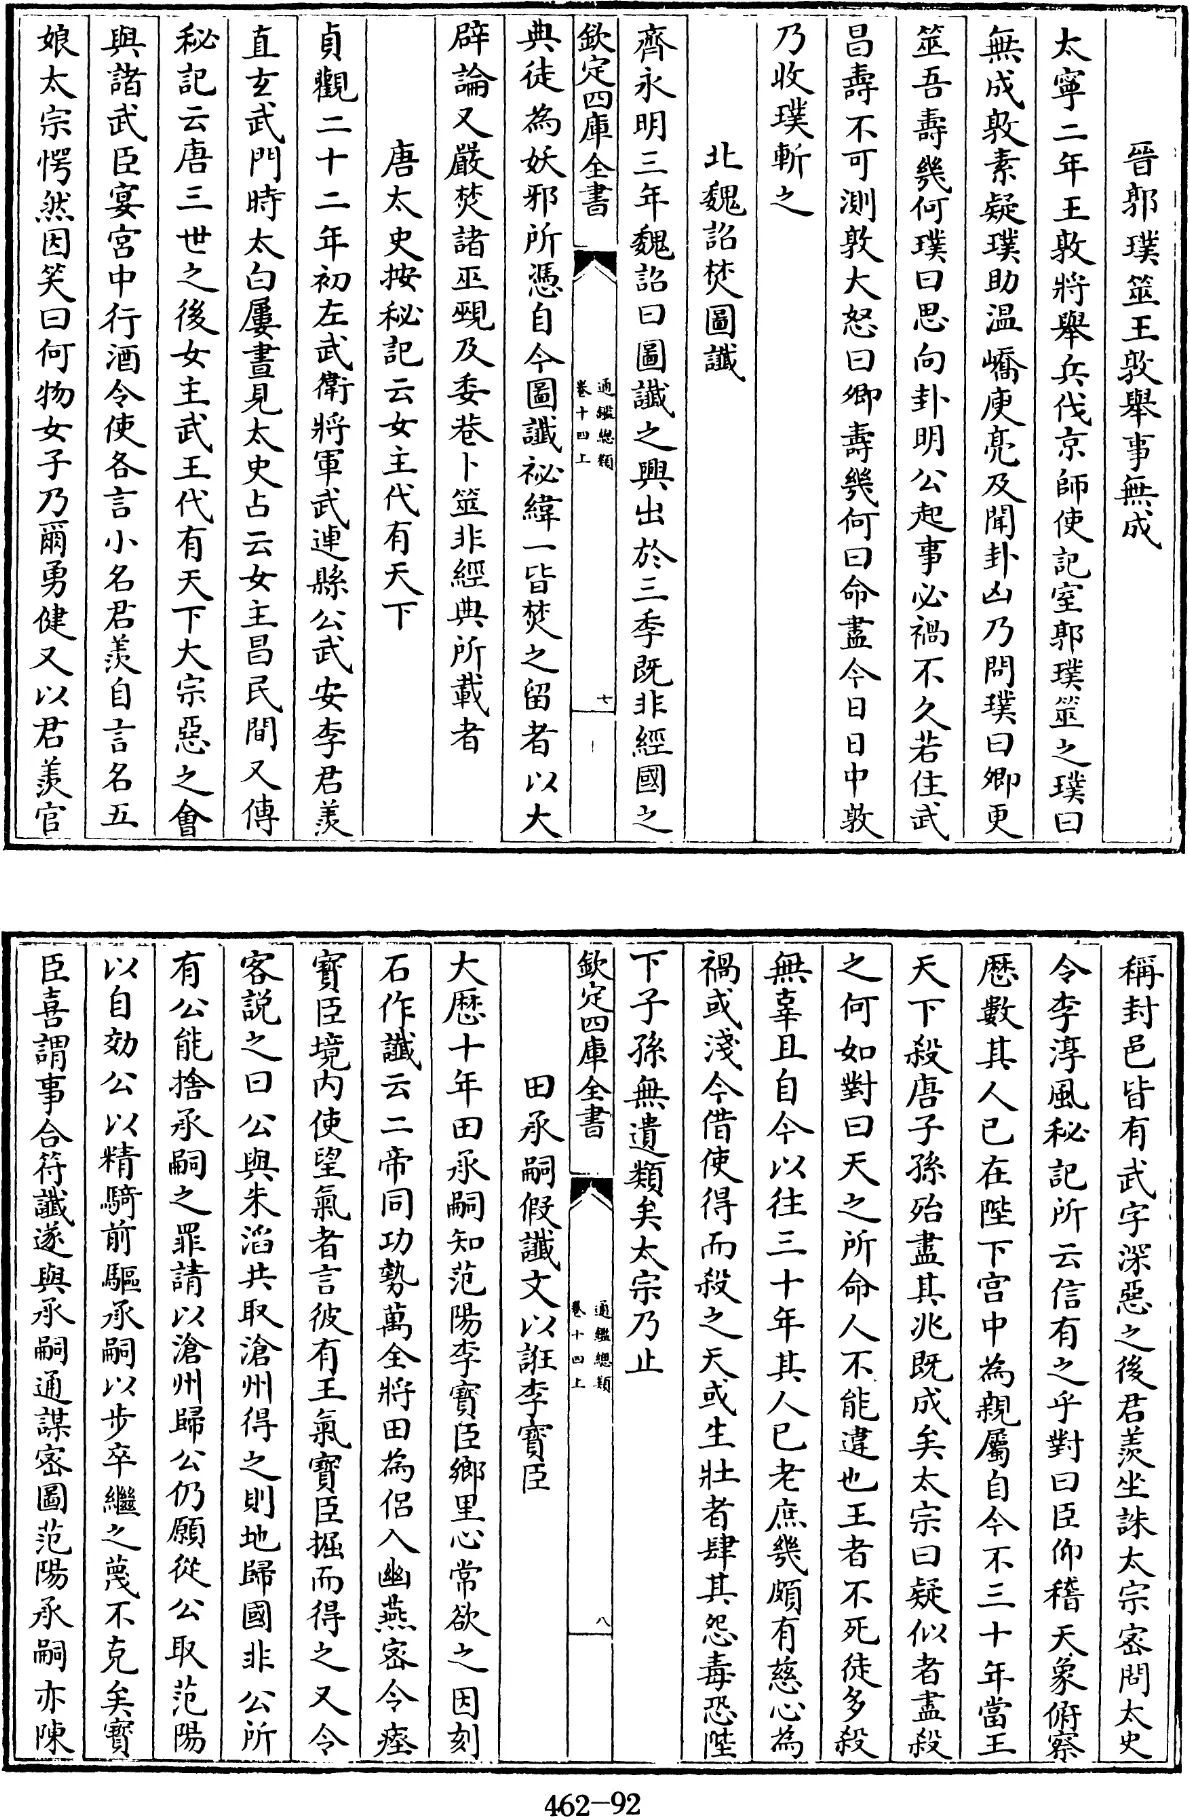 晉郭璞筮王敦舉事無成
太寧二年王敦將舉兵伐京師使記室郭璞筮之璞曰
無成敦素疑璞助温嶠庾亮及聞卦凶乃問璞曰卿更
筮吾壽幾何璞曰思向卦明公起事必禍不久若住武
昌壽不可測敦大怒曰卿壽幾何曰命盡今日日中敦
乃收璞斬之
北魏詔焚圖讖
齊永明三年魏詔曰圖讖之興出於三季既非經國之
欽定四庫全書
通鑑總類
卷十四上
七
典徒為妖邪所憑自今圖讖祕緯一皆焚之留者以大
辟論又嚴焚諸巫覡及委巷卜筮非經典所載者
唐太史按秘記云女主代有天下
貞觀二十二年初左武衛將軍武連縣公武安李君羨
直玄武門時太白屢晝見太史占云女主昌民間又傳
秘記云唐三世之後女主武王代有天下太宗惡之會
與諸武臣宴宮中行酒令使各言小名君羨自言名五
娘太宗愕然因笑曰何物女子乃爾勇健又以君羨官
稱封邑皆有武字深惡之後君羨坐誅太宗密問太史
令李淳風秘記所云信有之乎對曰臣仰稽天象俯察
厯數其人已在陛下宮中為親屬自今不三十年當王
天下殺唐子孫殆盡其兆既成矣太宗曰疑似者盡殺
之何如對曰天之所命人不能違也王者不死徒多殺
無辜且自今以往三十年其人已老庶幾頗有慈心為
禍或淺今借使得而殺之天或生壯者肆其怨毒恐陛
下子孫無遺類矣太宗乃止
欽定四庫全書
通鑑總類
卷十四上
八
田承嗣假讖文以誑李寳臣
大厯十年田承嗣知范陽李寳臣鄉里心常欲之因刻
石作讖云二帝同功勢萬全將田為侶入幽燕密令瘞
寳臣境内使望氣者言彼有王氣寳臣掘而得之又令
客説之曰公與朱滔共取滄州得之則地歸國非公所
有公能捨承嗣之罪請以滄州歸公仍願從公取范陽
以自効公以精騎前驅承嗣以步卒繼之蔑不克矣寳
臣喜謂事合符讖遂與承嗣通謀密圖范陽承嗣亦陳
462-92